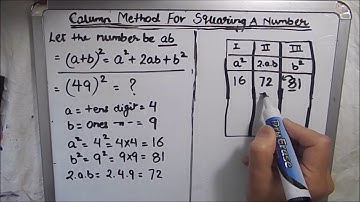 Column Method For Squaring A Number
Let the number be ab
= (a+b)² = a² + 2ab + b²
= (49)² = ?
a = tens digit = 4
b = ones -"- = 9
a² = 4² = 4×4 = 16
b² = 9² = 9×9 = 81
2.a.b = 2.4.9 = 72
I II III
a² 2.ab b²
16 72 81